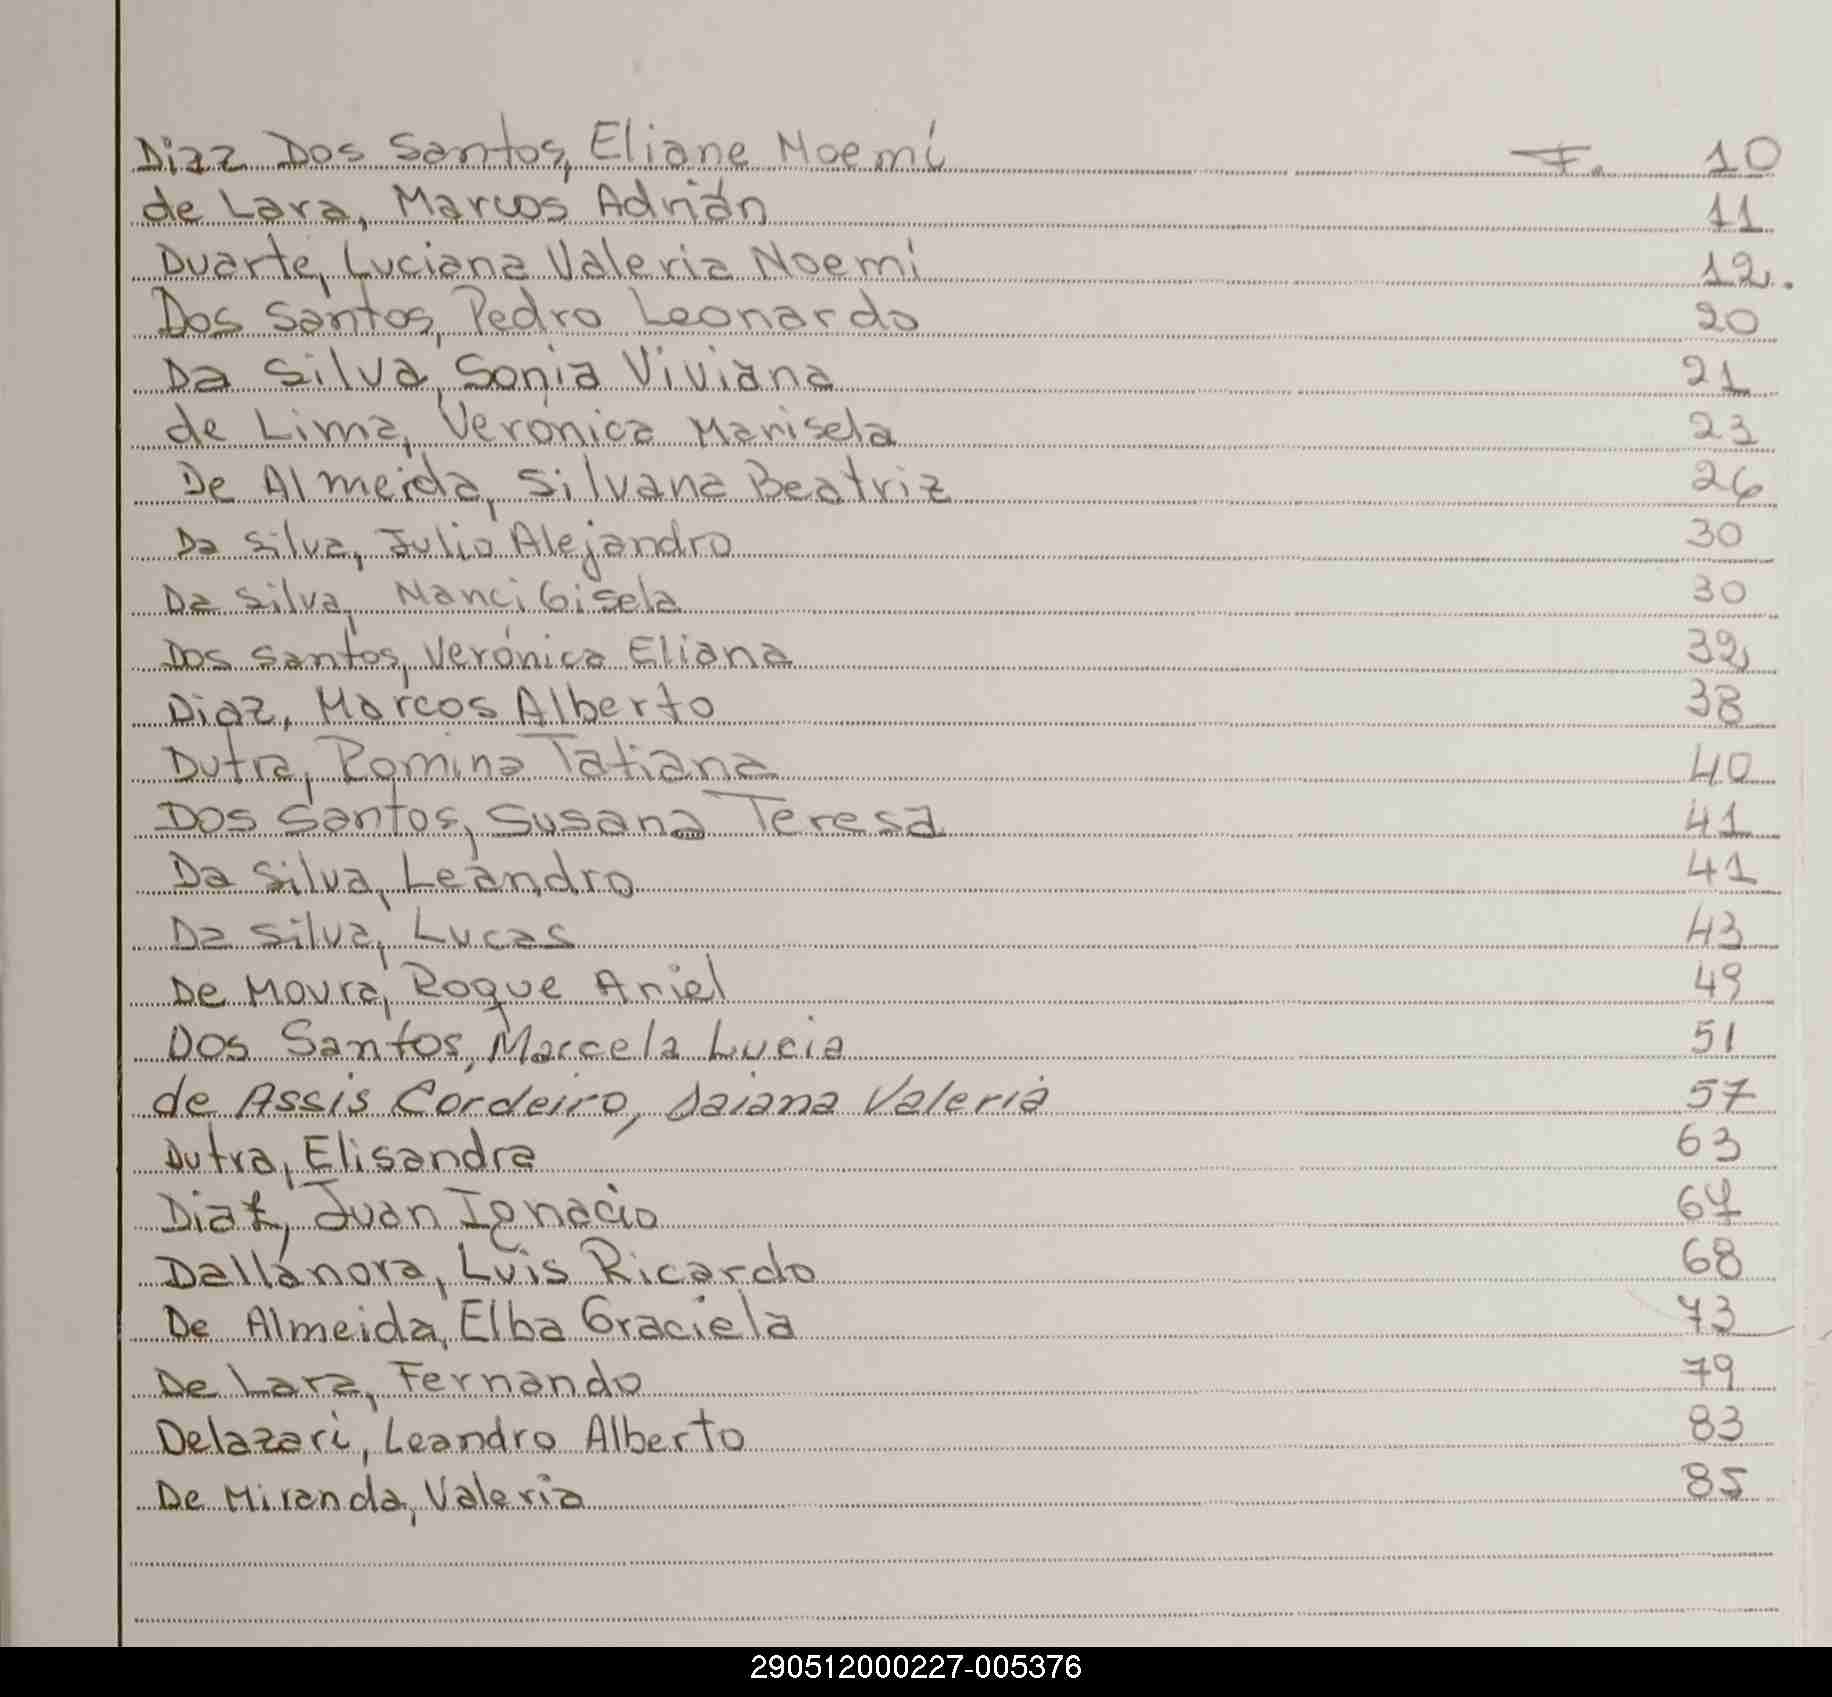 Diaz Dos Santos, Eliane Noemí F. 10
de Lara, Marcos Adrián 11
Duarte, Luciana Valeria Noemi 12.
Dos Santos, Pedro Leonardo 20
Da Silva, Sonia Viviana 21
de Lima, Verónica Marisela 23
De Almeida, Silvana Beatriz 26
Da Silva, Julio Alejandro 30
Da Silva, Nanci Gisela 30
Dos Santos, Verónica Eliana 32
Diaz, Marcos Alberto 38
Dutra, Romina Tatiana 40
Dos Santos, Susana Teresa 41
Da Silva, Leandro 41
Da Silva, Lucas 43
De Moura, Roque Ariel 49
Dos Santos, Marcela Lucia 51
de Assis Cordeiro, Daiana Valeria 57
Dutra, Elisandra 63
Diaz, Juan Ignacio 67
Dallanora, Luis Ricardo 68
De Almeida, Elba Graciela 73
De Lara, Fernando 79
Delazari, Leandro Alberto 83
De Miranda, Valeria 85
290512000227-005376